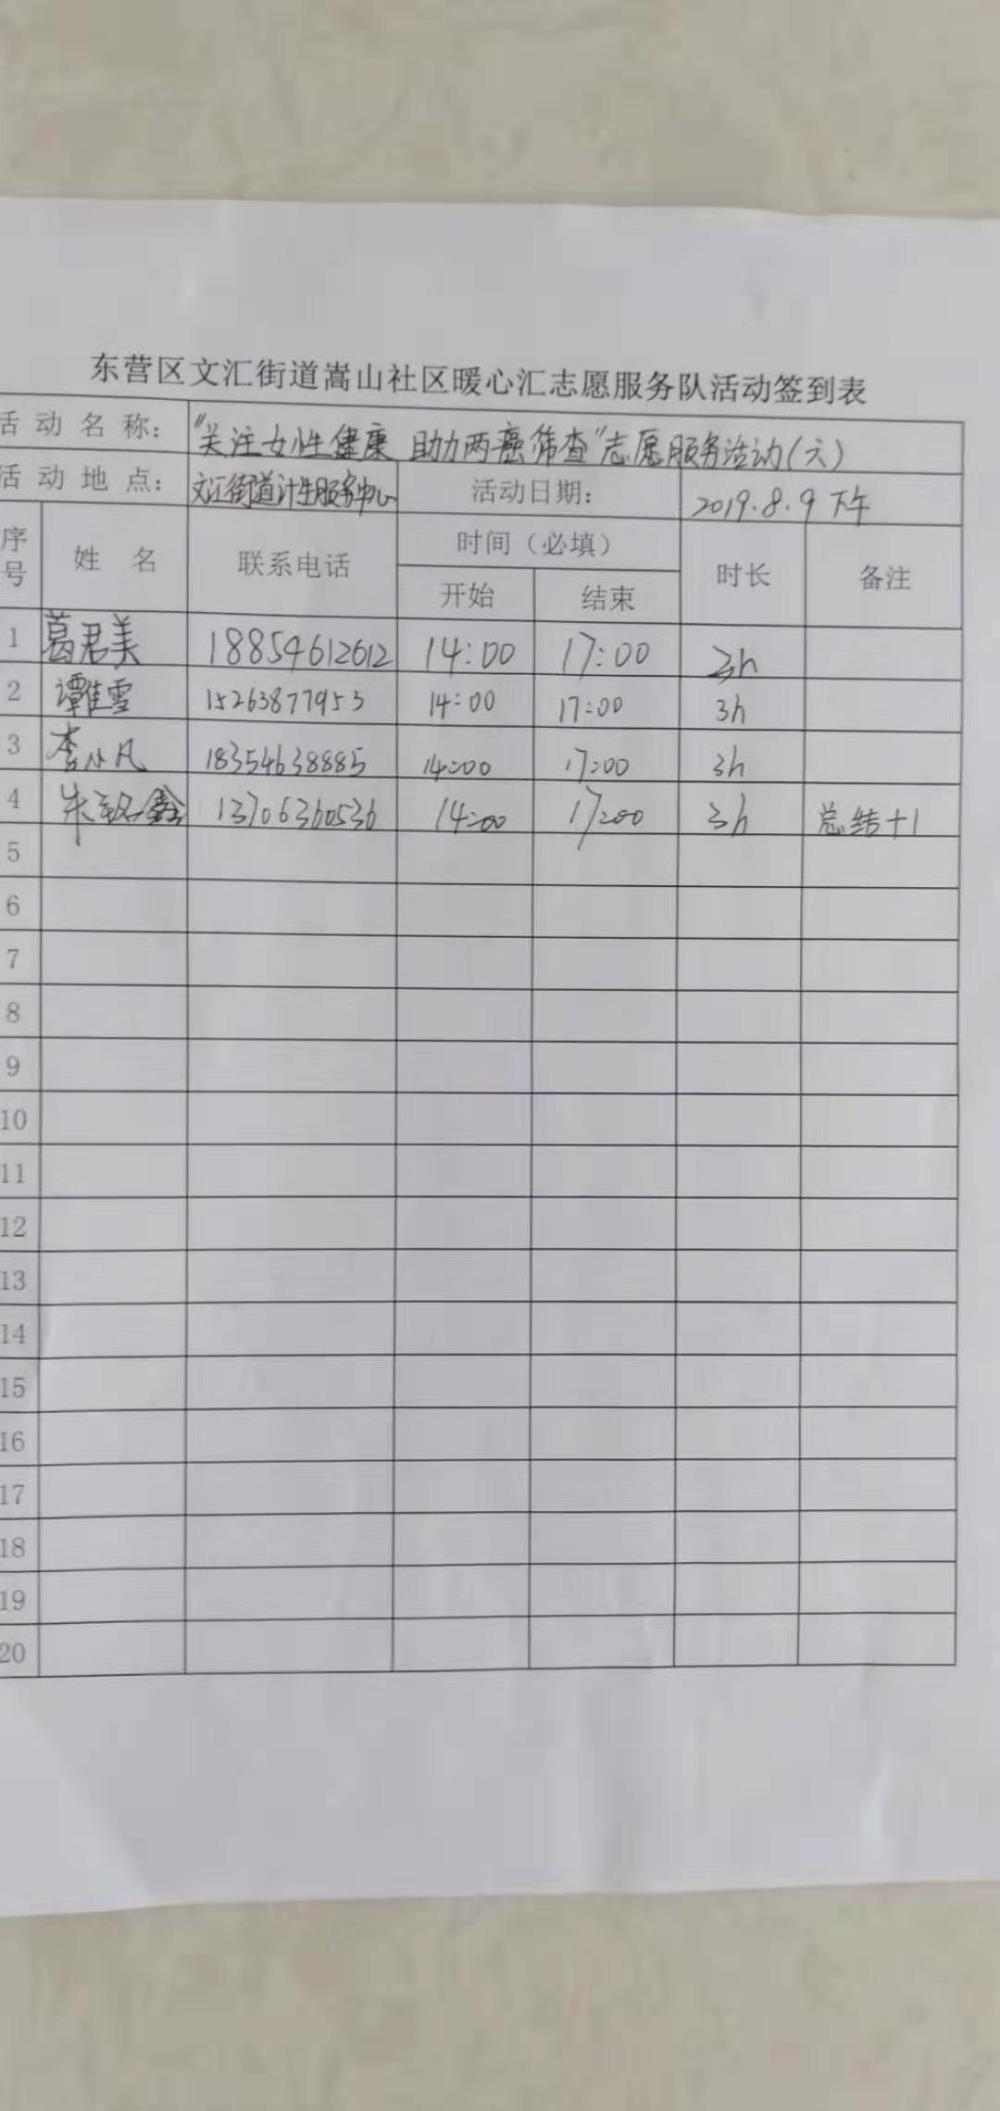 东营区文汇街道嵩山社区暖心汇志愿服务队活动签到表
活动名称： "关注女性健康 助力两癌筛查"志愿服务活动(六)
活动地点： 文汇街道计生服务中心 活动日期： 2019.8.9 下午
序号 姓名 联系电话 时间（必填） 时长 备注
开始 结束
1 葛君美 18854612612 14:00 17:00 3h
2 谭佳雪 15263877953 14:00 17:00 3h
3 李小凡 18354638885 14:00 17:00 3h
4 朱 鑫 13706360536 14:00 17:00 3h 总结+1
5
6
7
8
9
10
11
12
13
14
15
16
17
18
19
20